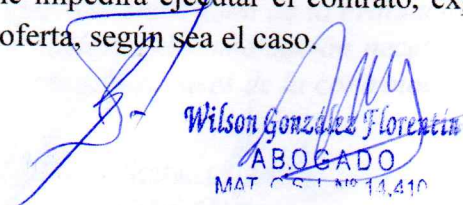 le impedirá ejecutar el contrato, ex
oferta, según sea el caso.
Wilson González Florentín
ABOGADO
MAT. C.S.J. Nº 14,410